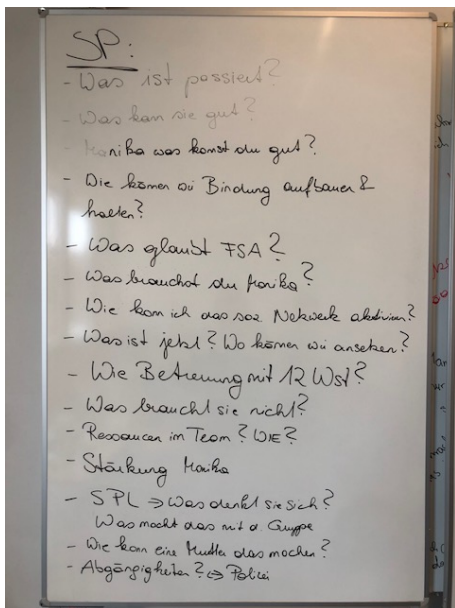 SP:
- Was ist passiert?
- Was kan sie gut?
- Monika was konst du gut?
- Wie können wi Bindung aufbauen &
halten?
- Was glaubt FSA?
- Was brauchst du Monika?
- Wie kom ich das soz Netzwerk aktivieren?
- Was ist jetzt? Wo können wi ansetzen?
- Wie Betreuung mit 12 Wst?
- Was braucht sie nicht?
- Ressourcen im Team? WIE?
- Stärkung Monika
- SPL => Was denkt sie sich?
Was macht das mit d. Gruppe
- Wie kann eine Mutter das machen?
- Abgängigkeiten? => Polizei